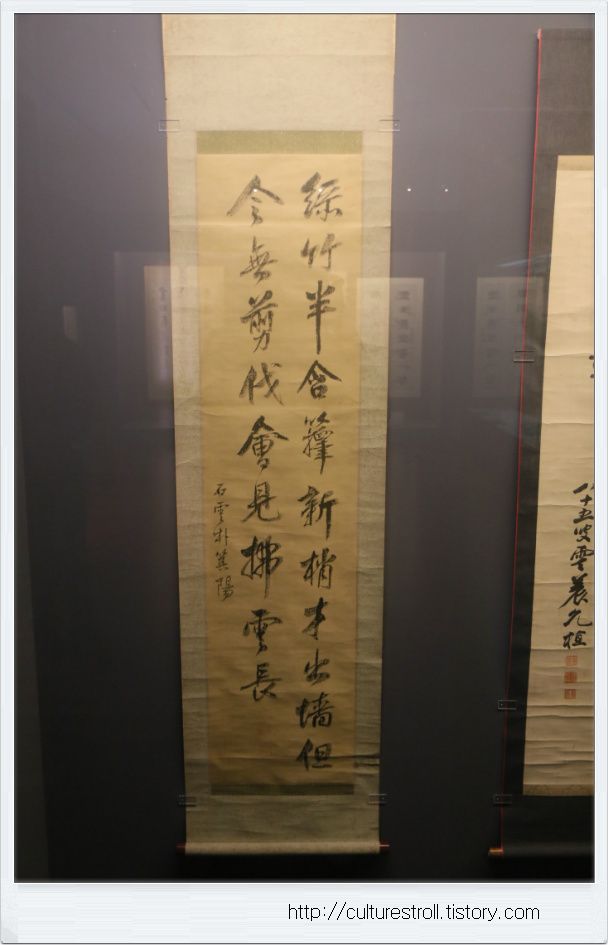 綠竹半含籜新梢才出墻但
令無剪伐會見拂雲長
石雲朴箕陽
八十五叟雲養允植
http://culturestroll.tistory.com